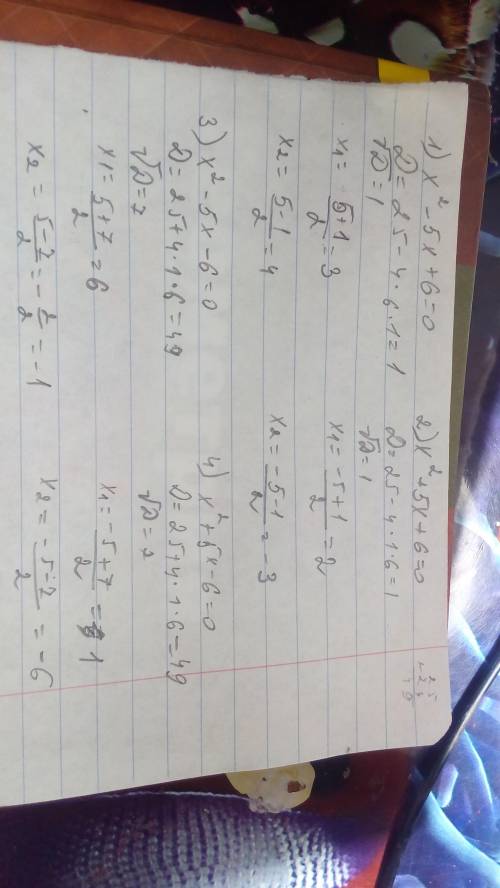 1) x² - 5x + 6 = 0
D = 25 - 4 · 6 · 1 = 1
√D = 1
x₁ = 5+1/2 = 3
x₂ = 5-1/2 = 4
2) x² + 5x + 6 = 0
D = 25 - 4 · 1 · 6 = 1
√D = 1
x₁ = -5+1/2 = -2
x₂ = -5-1/2 = -3
3) x² - 5x - 6 = 0
D = 25 + 4 · 1 · 6 = 49
√D = 7
x₁ = 5+7/2 = 6
x₂ = 5-7/2 = -2/2 = -1
4) x² + 5x - 6 = 0
D = 25 + 4 · 1 · 6 = 49
√D = 7
x₁ = -5+7/2 = 1
x₂ = -5-7/2 = -6